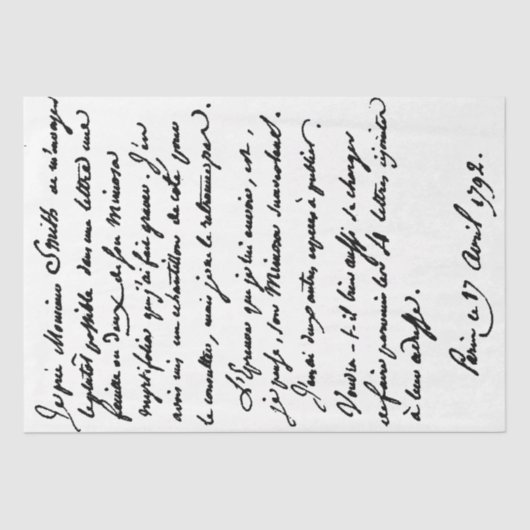 Je prie Monsieur Smith de
le plutôt possible dans une lettre une
feuille ou deux de son Mimosa
que j'ai fait graver. J'en
avois mis un echantillon de coté pour
le consulter, mais je ne le retrouve pas.
L'Epreuve que je lui envoie, est,
je pense, son Mimosa suaveolens.
J'en ai deux autres especes à publier.
Voudra-t-il bien aussi se charger
de faire parvenir les 4 lettres, cijointes
à leur adresse.
Paris le 17 Avril 1792.